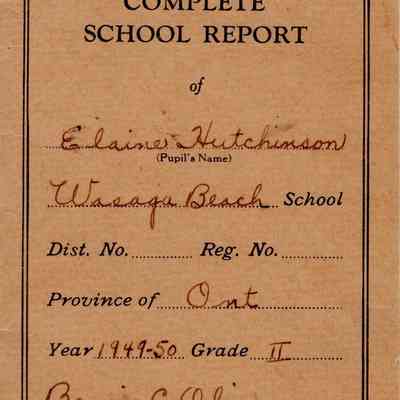 COMPLETE
SCHOOL REPORT
of
Elaine Hutchinson
(Pupil's Name)
Wasaga Beach School
Dist. No. Reg. No.
Province of Ont
Year 1949-50 Grade II